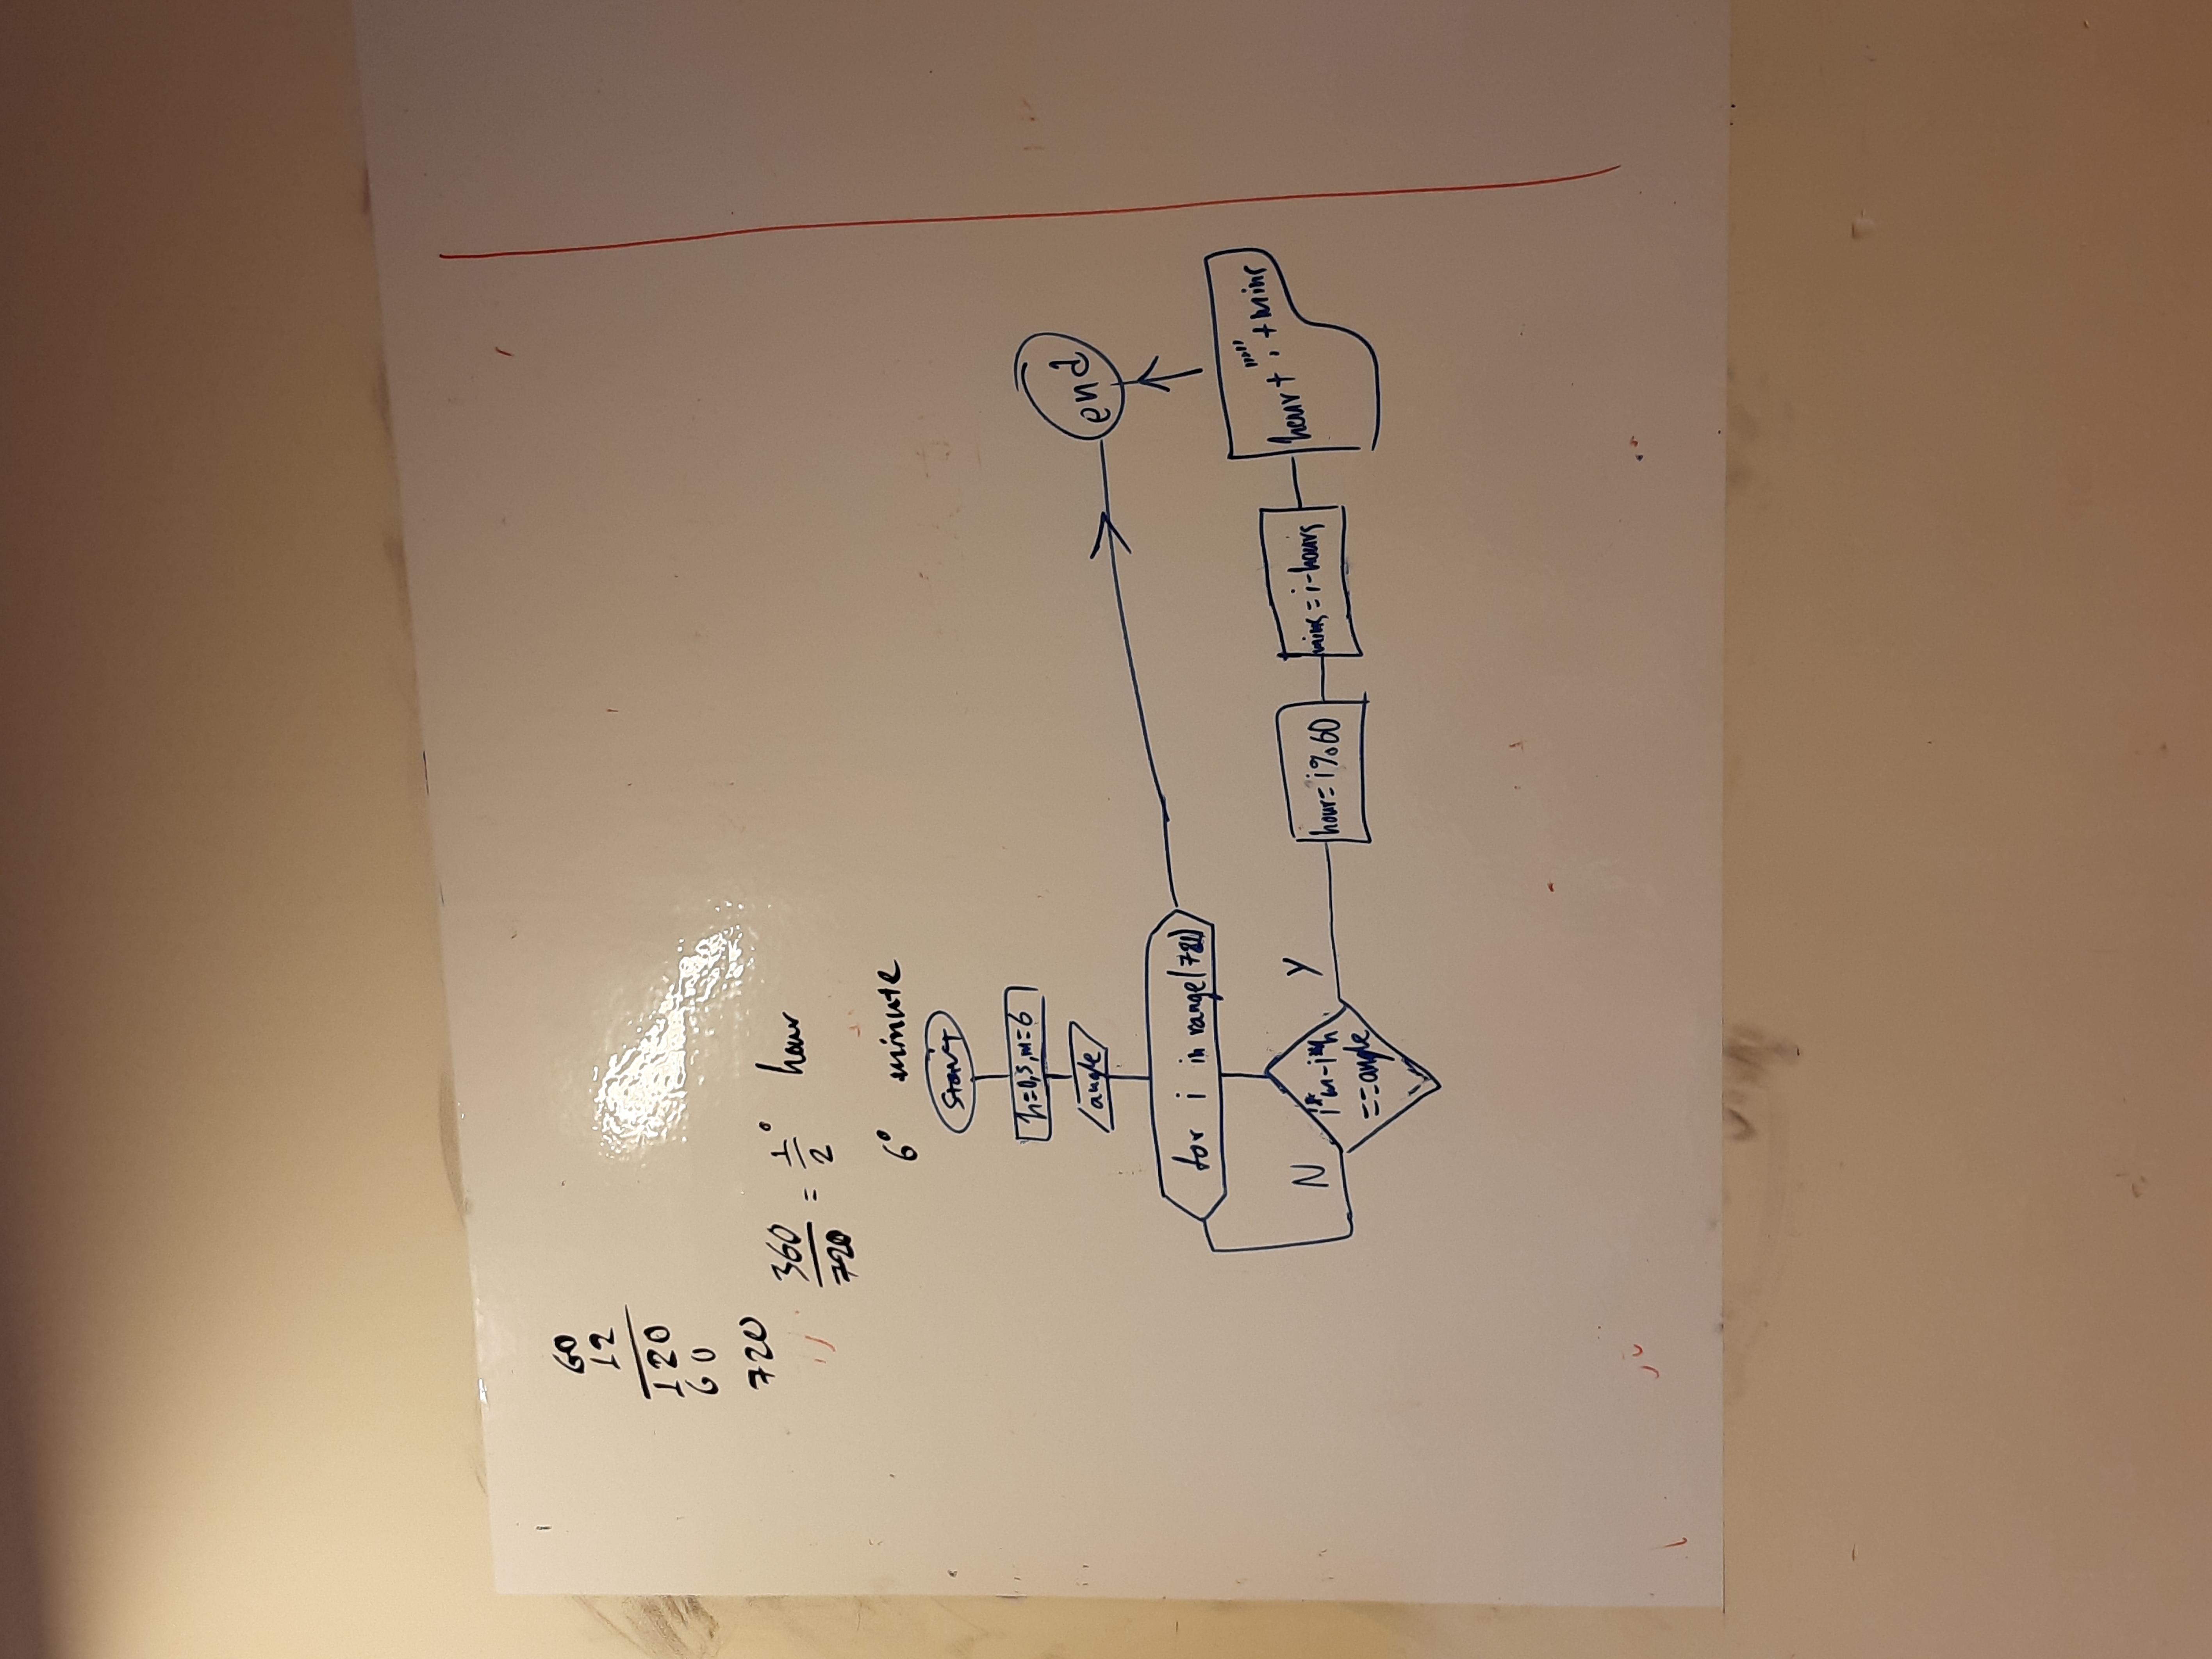 60
12
120
60
720
360
720
= 1/2° hour
6° minute
start
h=0,5, m=6
angle
for i in range(721)
N
i*m-i*h
==angle
Y
hour=i%60
mins=i-hours
hour+":"+mins
end